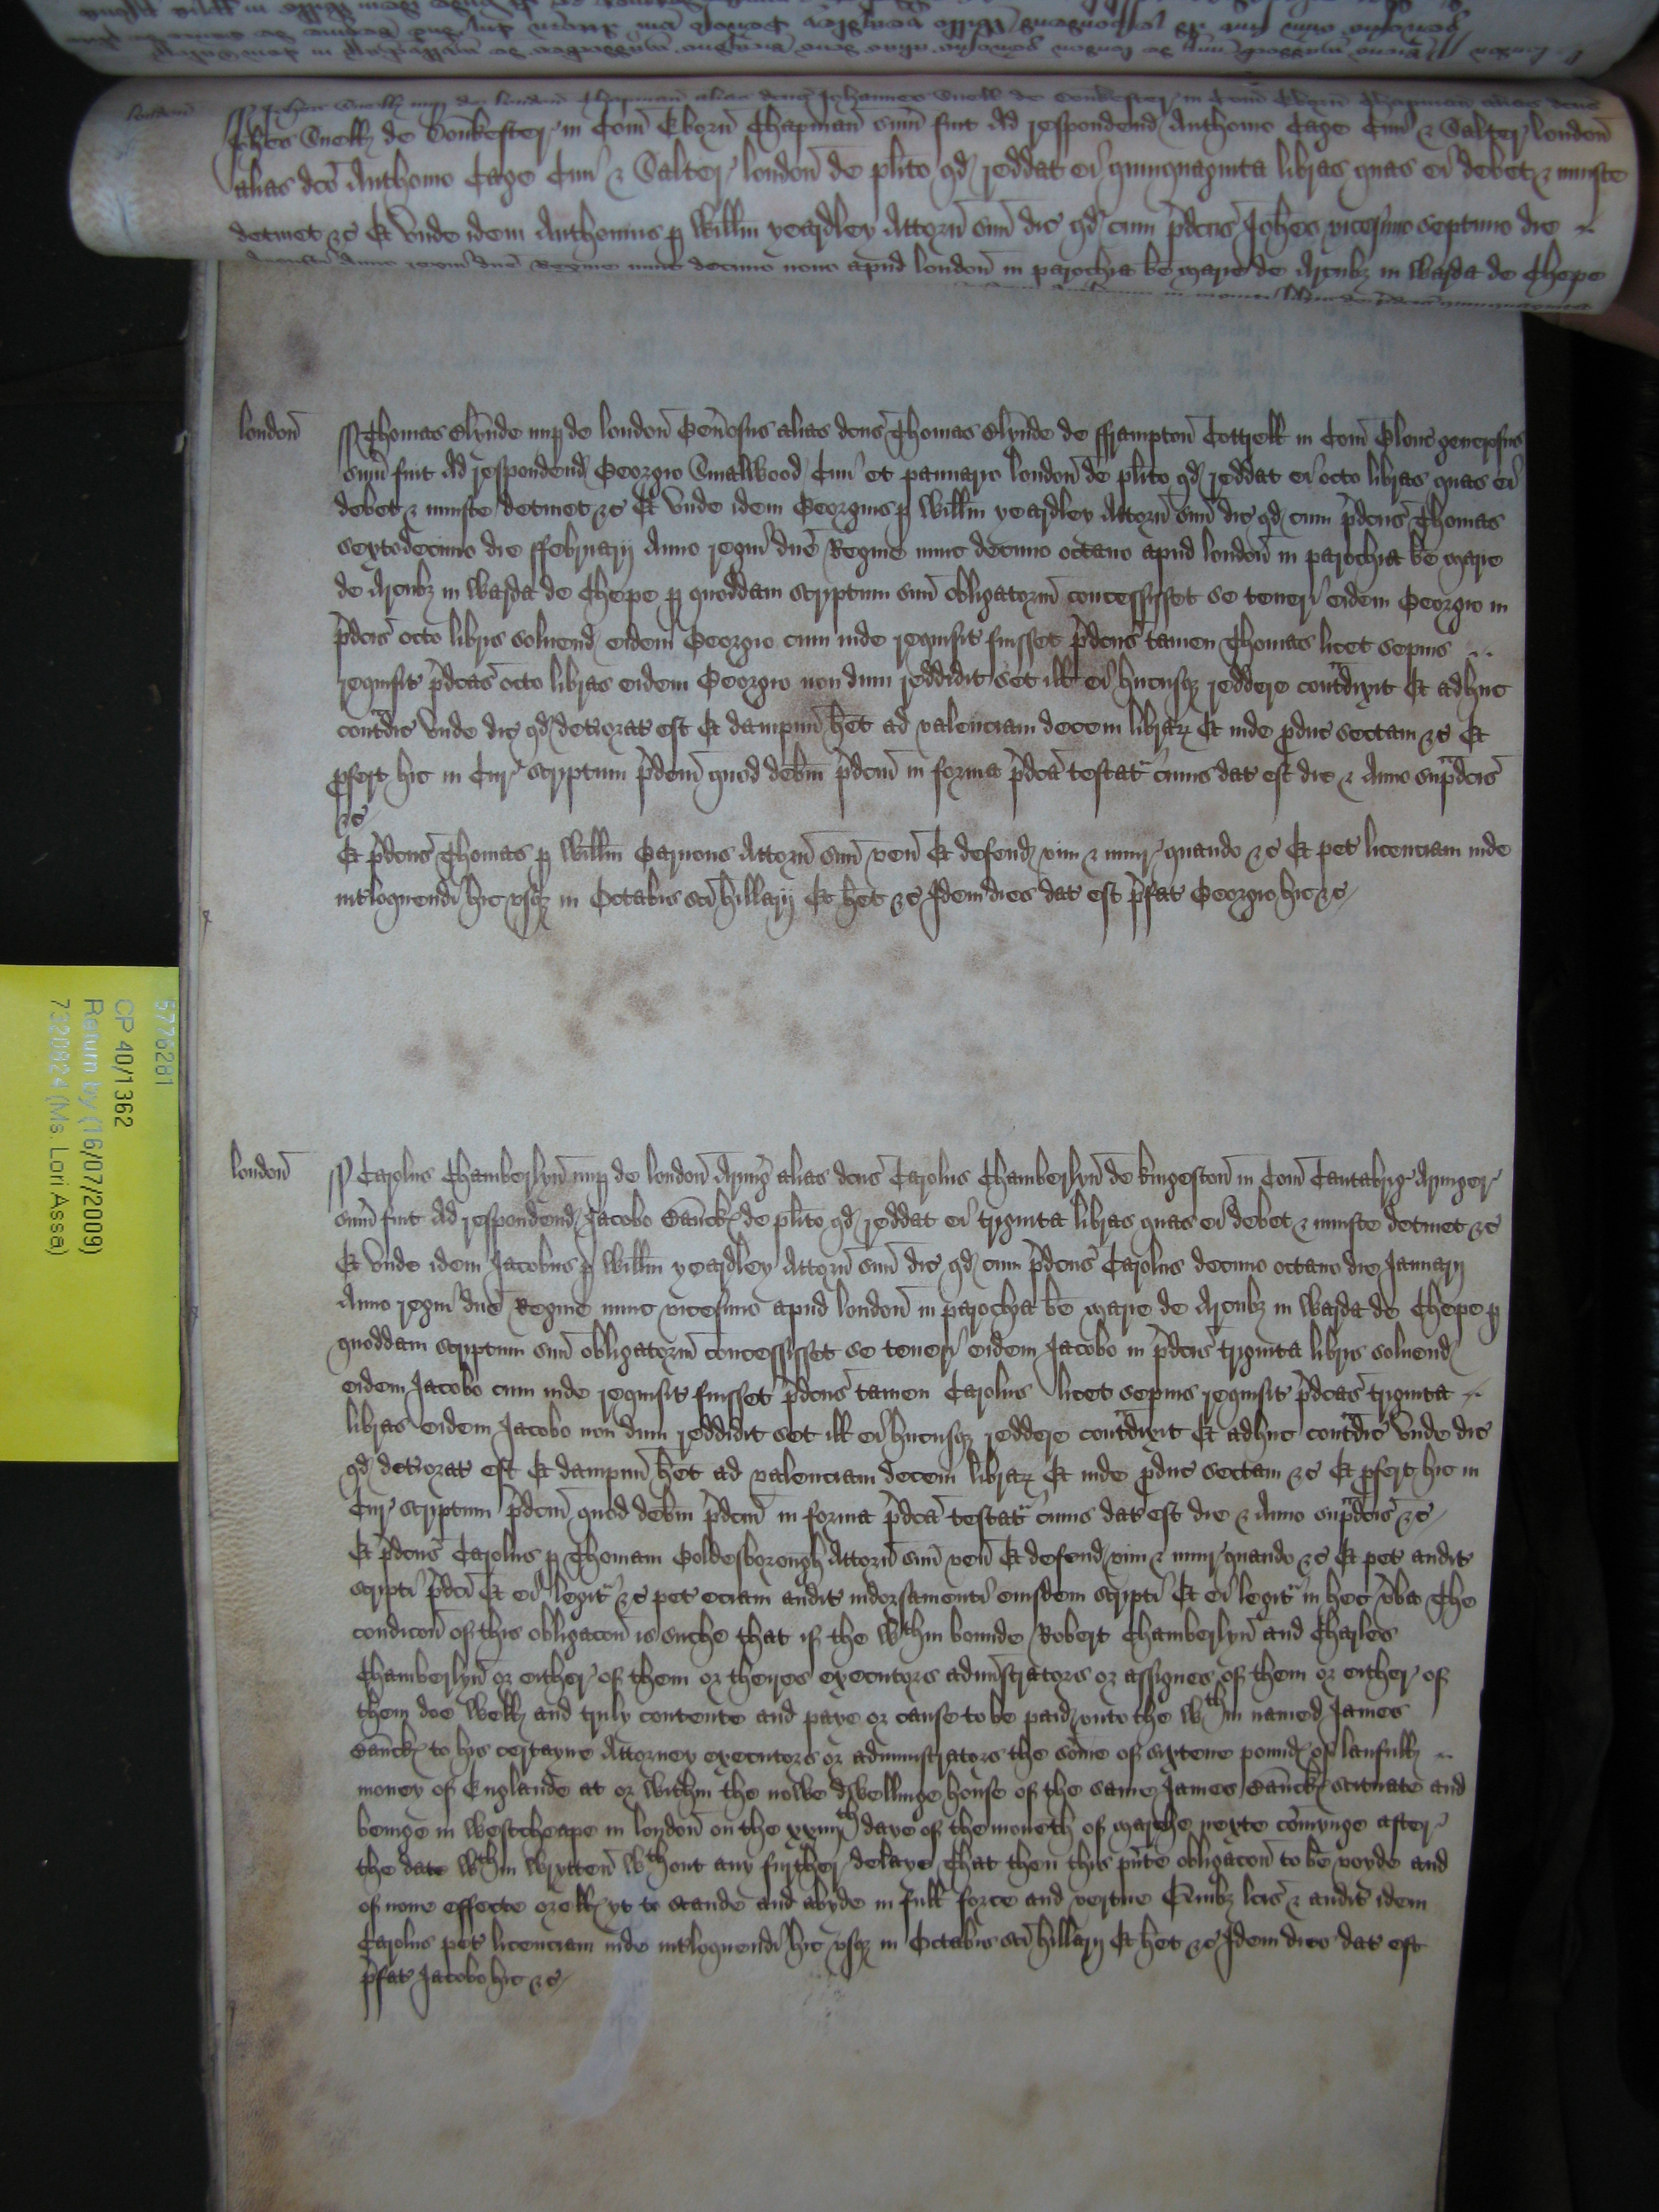 london
Johes Snell de Donkester in Com Eborn Chapman sum fuit Ad respondend Anthonio Cage Civi & Salter london
alias dco Anthonio Cage Civi & Salter london de plito qd reddat ei quinquaginta libras quas ei debet & iniuste
detinet &c Et Unde idem Anthonius p Willm yeardley Attorn suu dic qd cum pdcus Johes vicesimo septimo die
anno regni dne Regine nunc decimo nono apud london in parochia be marie de Arcubz in Warda de Chepe
london
Thomas Slynde nup de london Generosus alias dcus Thomas Slynde de fframpton Cottrell in Com Glouc generosus
sum fuit Ad respondend Georgio Smalwood Civi et pannario london de plito qd reddat ei octo libras quas ei
debet & iniuste detinet &c Et Unde idem Georgius p Willm yeardley Attorn suu dic qd cum pdcus Thomas
sextodecimo die ffebruarij Anno regni dne Regine nunc decimo octavo apud london in parochia be marie
de Arcubz in Warda de Chepe p quoddam scriptum suu obligatoriu concessisset se teneri eidem Georgio in
pdcis octo libris solvend eidem Georgio cum inde requisit fuisset pdcus tamen Thomas licet sepius
requisit pdcas octo libras eidem Georgio non dum reddidit set ill ei hucusqz reddere contradixit Et adhuc
contradic Unde dic qd deteriorat est Et dampnu het ad valenciam decem librar Et inde produc sectam &c Et
profert hic in Cur scriptum pdcm quod debm pdcm in forma pdca testat cuius dat est die & Anno supradcis
&c
Et pdcus Thomas p Willm Garnons Attorn suu ven Et defend vim & iniur quando &c Et pet licenciam inde
intloquendi hic usqz in Octabis sci hillarij Et het &c Idem dies dat est pfat Georgio hic &c
london
Carolus Chamberlyn nup de london Armig alias dcus Carolus Chamberlyn de kingeston in Com Cantabrig Armiger
sum fuit Ad respondend Jacobo Banck de plito qd reddat ei triginta libras quas ei debet & iniuste detinet &c
Et Unde idem Jacobus p Willm yeardley Attorn suu dic qd cum pdcus Carolus decimo octavo die Januarij
Anno regni dne Regine nunc vicesimo apud london in parochia be marie de Arcubz in Warda de Chepe p
quoddam scriptum suu obligatoriu concessisset se teneri eidem Jacobo in pdcis triginta libris solvend
eidem Jacobo cum inde requisit fuisset pdcus tamen Carolus licet sepius requisit pdcas triginta
libras eidem Jacobo non dum reddidit set ill ei hucusqz reddere contradixit Et adhuc contradic Unde dic
qd deteriorat est Et dampnu het ad valenciam decem librar Et inde produc sectam &c Et profert hic in
Cur scriptum pdcm quod debm pdcm in forma pdca testat cuius dat est die & Anno supradcis &c
Et pdcus Carolus p Thomam Goldesborough Attorn suu ven Et defend vim & iniur quando &c Et pet audit
scripti pdci Et ei legit &c pet eciam audit indorsamenti eiusdem scripti Et ei legit in hec vba The
condicon of this obligacon is suche that if the wthin bounde Robert Chamberlyn and Charles
Chamberlyn or either of them or theires executors adminstrators or assignes of them or either of
them doe well and truly contente and paye or cause to be paid unto the wth in named James
Banck to his certayne Attorney executors or administrators the some of sixtene pound of laufull
money of Englande at or within the nowe dwellinge house of the same James Banck scituate and
beinge in westcheape in london on the xxiiijth daye of the moneth of marche nexte comynge after
the date wthin wrytten wthout any further delaye That then this pnte obligacon to be voyde and
of none effecte or ell yt to stande and abyde in full force and vertue Quibz lcis & audit idem
Carolus pet licenciam inde intloquendi hic usqz in Octabis sci hillarij Et het &c Idem dies dat est
pfat Jacobo hic &c
5776281
CP 40/1362
Return by (16/07/2009)
7320824 (Ms. Lori Assa)